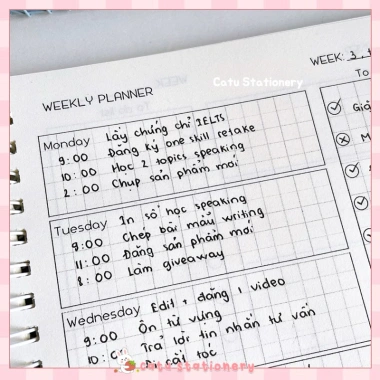 Catu Stationery
WEEK: 3
WEEKLY PLANNER
To
Monday Lấy chứng chỉ IELTS
9:00 Đăng ký one skill retake
10:00 Học 2 topics speaking
2:00 Chụp sản phẩm mới
Tuesday In sổ học speaking
9:00 Chép bài mẫu writing
11:00 Đăng sản phẩm mới
8:00 Làm giveaway
Wednesday Edit, đăng 1 video
9:00 Ôn từ vựng
10: Trả lời tin nhắn tư vấn
cắt tóc
Catu stationery